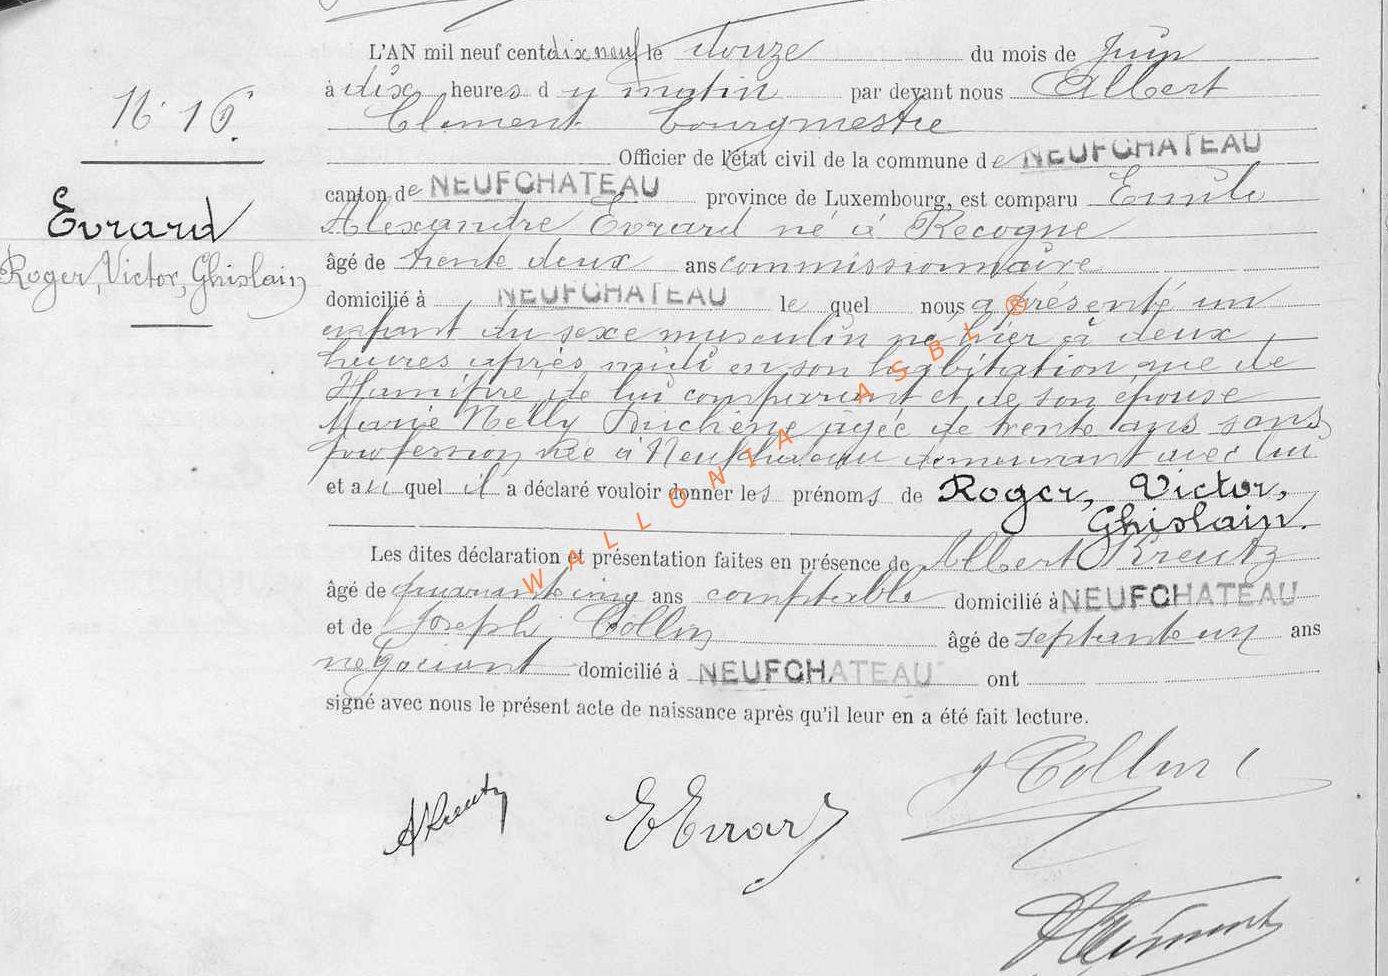 L'AN mil neuf cent dix neuf le douze du mois de Juin
à dix heures du matin par devant nous Albert
N° 16.
Clément bourgmestre
Officier de l'état civil de la commune de NEUFCHATEAU
canton de NEUFCHATEAU province de Luxembourg, est comparu Emile
Evrard
Alexandre Evrard né à Recogne
Roger, Victor, Ghislain
âgé de trente deux ans commissionnaire
domicilié à NEUFCHATEAU le quel nous a présenté un
enfant du sexe musculin né hier à deux
heures après midi en son habitation rue de
de lui comparant et de son épouse
Marie Nelly Duchêne agée de trente ans sans
profession née à Neufchateau demeurant avec lui
et au quel il a déclaré vouloir donner les prénoms de Roger, Victor,
Ghislain.
Les dites déclaration et présentation faites en présence de Albert Kreutz
âgé de quarante cinq ans comptable domicilié à NEUFCHATEAU
et de Joseph Collin âgé de septante un ans
négociant domicilié à NEUFCHATEAU ont
signé avec nous le présent acte de naissance après qu'il leur en a été fait lecture.
WALLONIA ASBL ®
J Collin
AKreutz
E Evrard
AClément